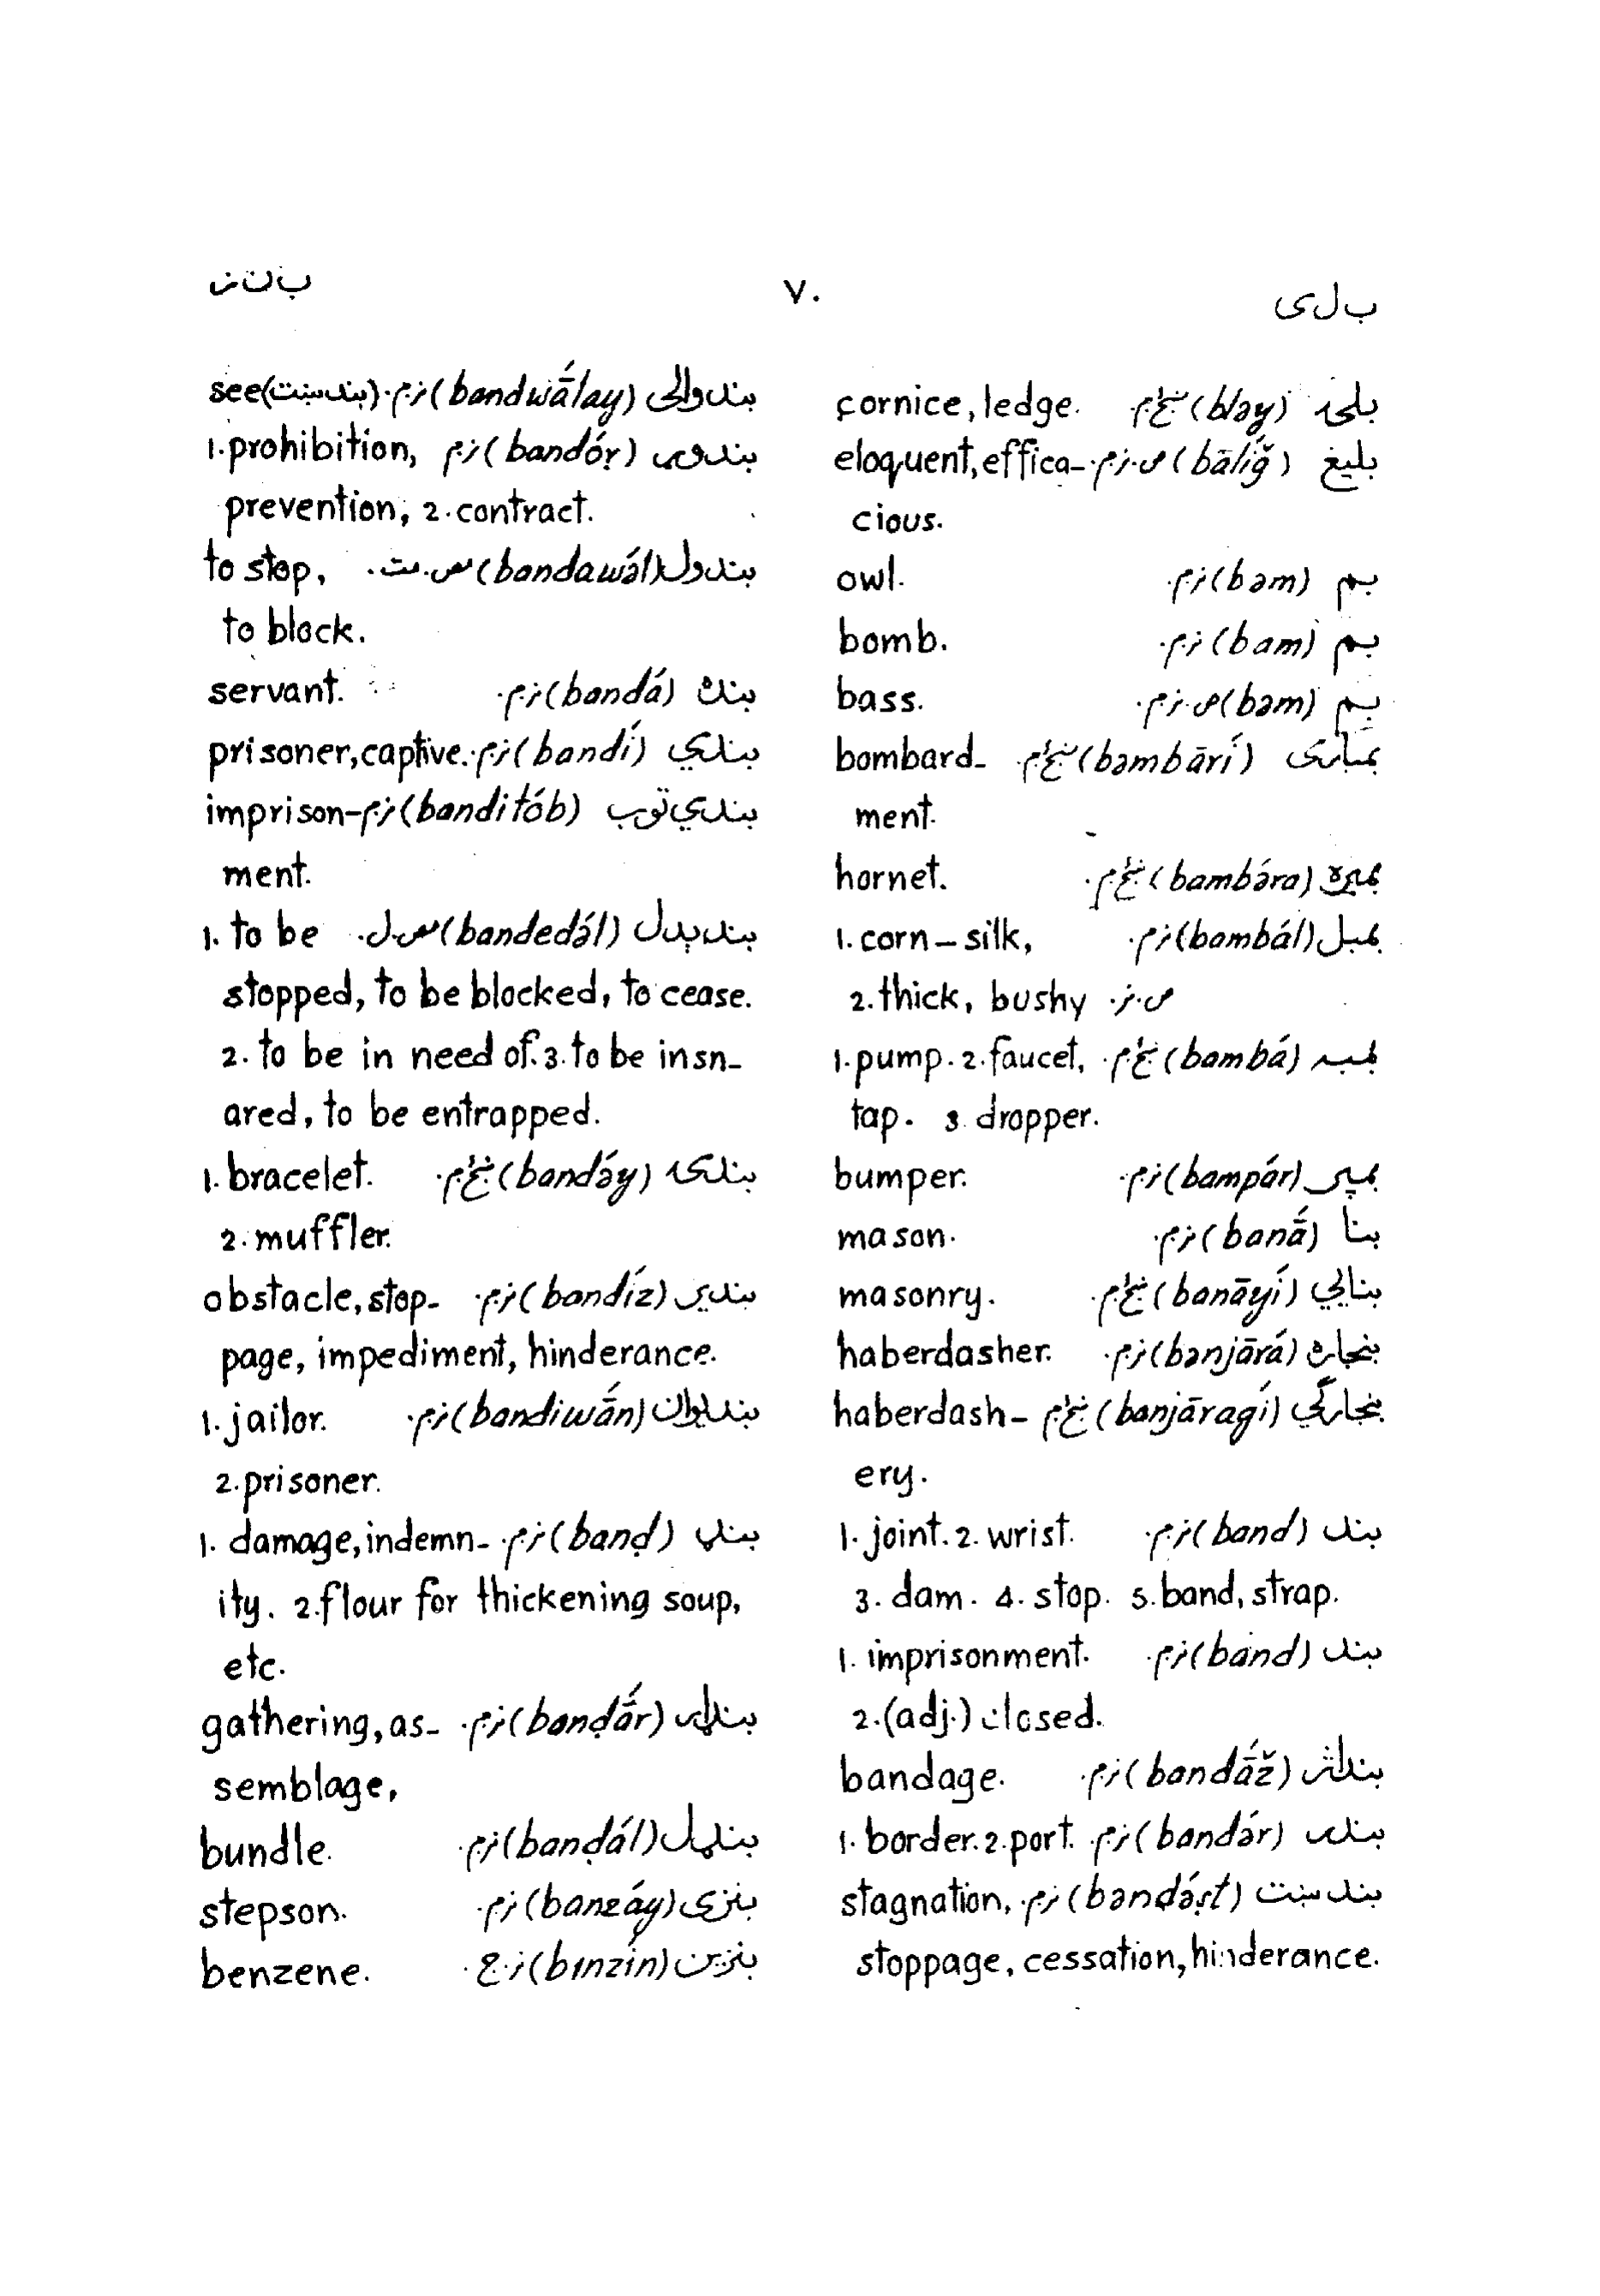 ب ل ی
۷۰
ب ن ز
بلۍ (bləy) ښځ.م. cornice, ledge.
بلیغ (balíğ) ص.نر.م. eloquent, effica-
cious.
بم (bəm) نر.م. owl.
بم (bam) نر.م. bomb.
بم (bəm) ص.نر.م. bass.
بمباري (bəmbārí) ښځ.م. bombard-
ment.
بمبره (bambə́ra) ښځ.م. hornet.
بمبل (bambál) نر.م. 1. corn-silk,
2. thick, bushy ص.نر.
بمبه (bambá) ښځ.م. 1. pump. 2. faucet,
tap. 3. dropper.
بمپر (bampár) نر.م. bumper.
بنا (banā́) نر.م. mason.
بنايي (banāyí) ښځ.م. masonry.
بنجاره (bənjārá) نر.م. haberdasher.
بنجارګي (banjāragí) ښځ.م. haberdash-
ery.
بند (band) نر.م. 1. joint. 2. wrist.
3. dam. 4. stop. 5. band, strap.
بند (band) نر.م. 1. imprisonment.
2. (adj.) closed.
بنداژ (bandā́ž) نر.م. bandage.
بندر (bandár) نر.م. 1. border. 2. port.
بندښت (bəndə́ṣt) نر.م. stagnation,
stoppage, cessation, hinderance.
بندوالی (bandwā́lay) نر.م. see (بندښت)
بندوړ (bandóṛ) نر.م. 1. prohibition,
prevention, 2. contract.
بندول (bandawə́l) مص.مت. to stop,
to block.
بنده (bandá) نر.م. servant.
بندي (bandí) نر.م. prisoner, captive.
بندي توب (banditób) نر.م. imprison-
ment.
بندېدل (bandedə́l) مص.ل. 1. to be
stopped, to be blocked, to cease.
2. to be in need of. 3. to be insn-
ared, to be entrapped.
بندۍ (bandə́y) ښځ.م. 1. bracelet.
2. muffler.
بندیز (bandíz) نر.م. obstacle, stop-
page, impediment, hinderance.
بندیوان (bandiwā́n) نر.م. 1. jailor.
2. prisoner.
بنډ (banḍ) نر.م. 1. damage, indemn-
ity. 2. flour for thickening soup,
etc.
بنډار (banḍā́r) نر.م. gathering, as-
semblage,
بنډل (banḍál) نر.م. bundle.
بنزی (banzáy) نر.م. stepson.
بنزین (bınzín) نر.ج. benzene.